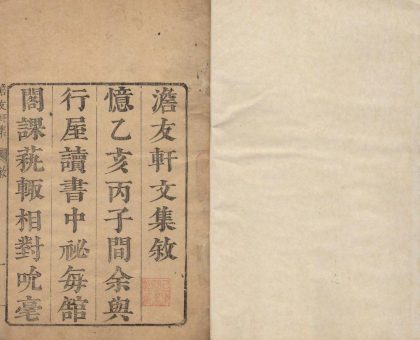 澹友軒文集敘
憶乙亥丙子間余與
行屋讀書中祕每舘
閣課蓺輙相對吮毫